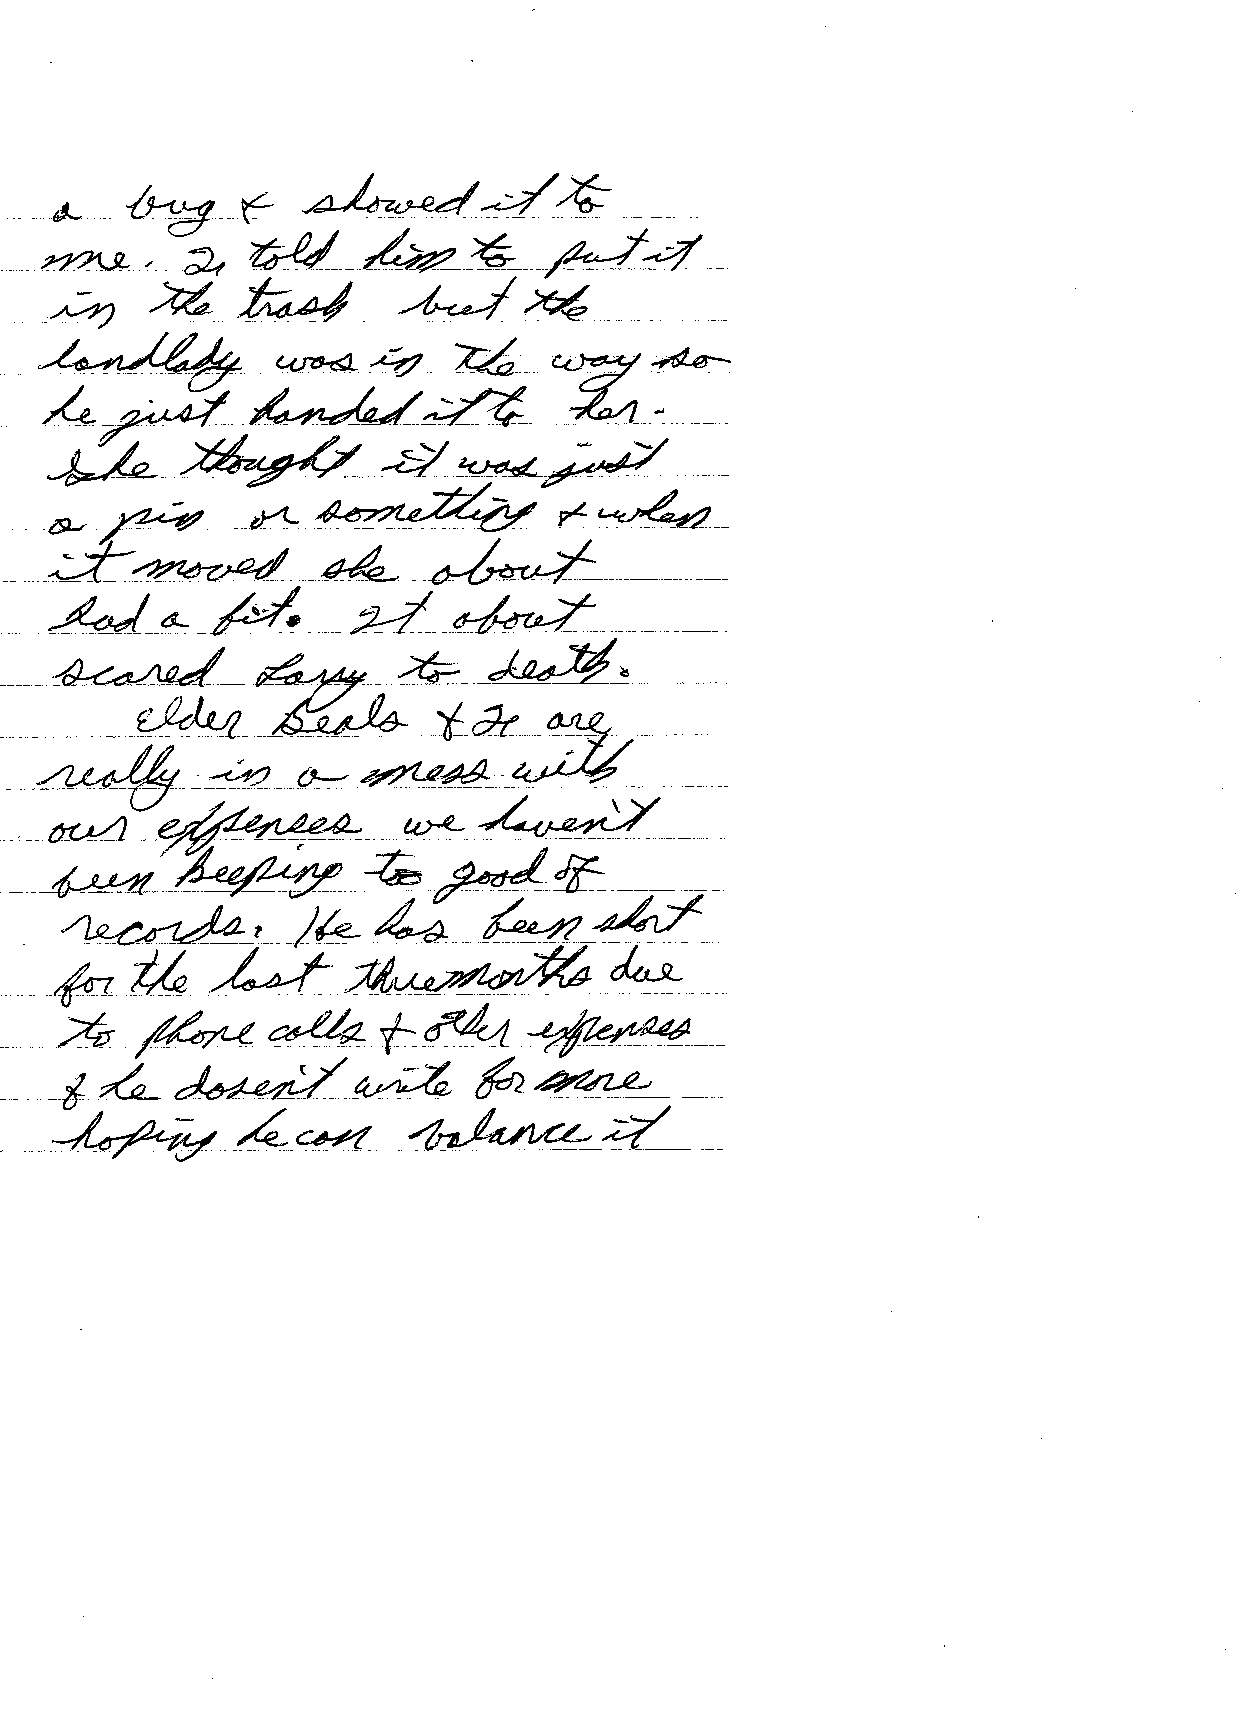 a bug & showed it to
me. I told him to put it
in the trash but the
landlady was in the way so
he just handed it to her.
She thought it was just
a pin or something & when
it moved she about
had a fit. It about
scared Larry to death.
Elder Beals & I are
really in a mess with
our expenses we haven't
been keeping to good of
records. He has been short
for the last three months due
to phone calls & other expenses
& he dosen't write for more
hoping he can balance it